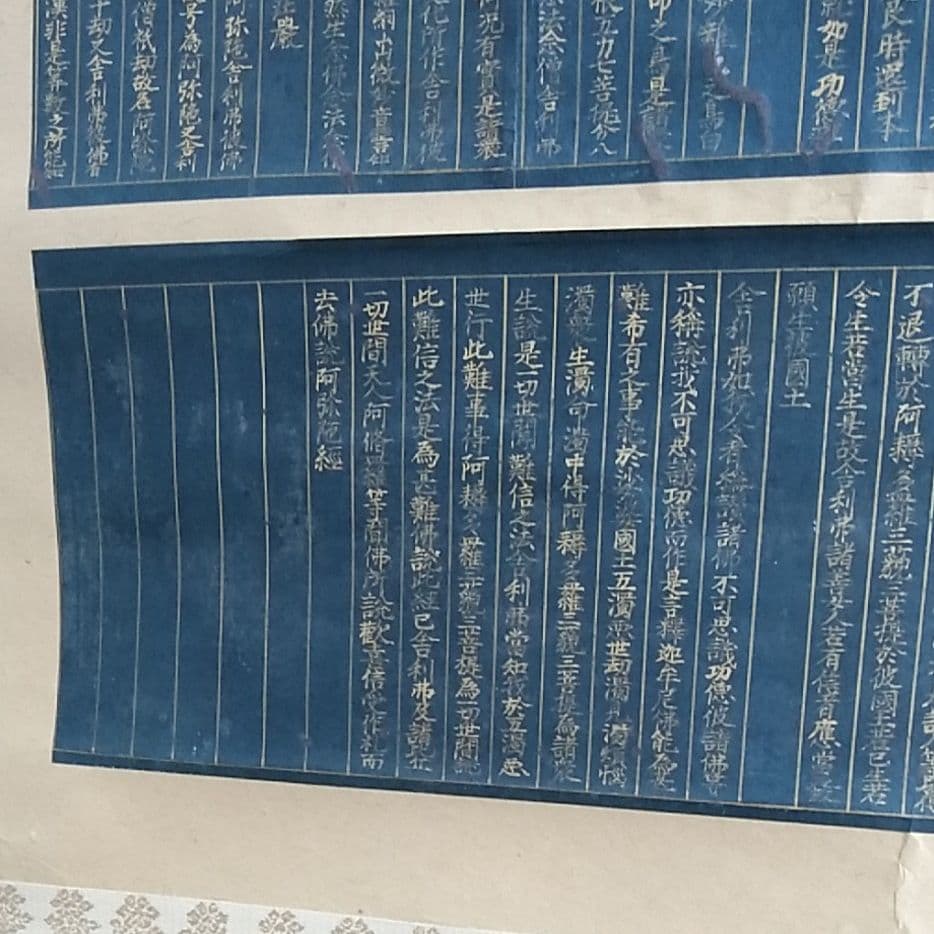 時還到本
如是功德莊
雜色鳥白
命之鳥是諸
根五力七菩提分八
念法念僧舍利弗
何況有實是諸衆
化所作舍利弗彼
羅網出微妙音譬如
生念佛念法念僧
莊嚴
阿弥陁舍利弗彼佛
号為阿弥陁又舍利
僧祇劫故名阿弥陁
十劫又舍利弗彼佛有
漢非是筭數之所能知
不退轉於阿耨多羅三藐三菩提於彼國土若已生若
今生若當生是故舍利弗諸善女人若有信者應當發
願生彼國土
舍利弗如我今者稱讚諸佛不可思議功德彼諸佛等
亦稱説我不可思議功德而作是言釋迦牟尼佛能為甚
難希有之事能於娑婆國土五濁惡世劫濁見濁煩惱
濁衆生濁命濁中得阿耨多羅三藐三菩提為諸衆
生說是一切世間難信之法舍利弗當知我於五濁惡
世行此難事得阿耨多羅三藐三菩提為一切世間說
此難信之法是為甚難佛說此經已舍利弗及諸比丘
一切世間天人阿脩羅等聞佛所說歡喜信受作礼而
去佛說阿弥陀經